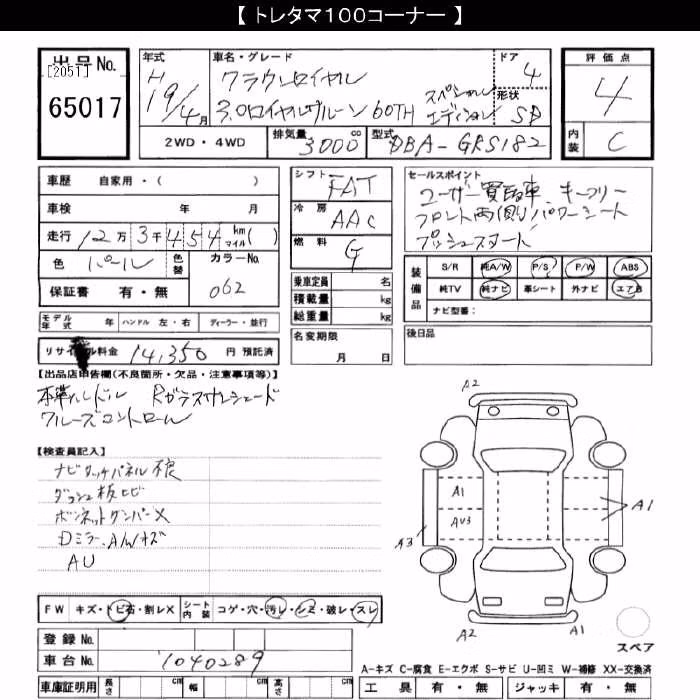 【 トレタマ100コーナー 】
出品No.
[2051]
65017
年式
H19/4月
車名・グレード
クラウンロイヤル
3.0ロイヤルサルーン 60TH スペシャルエディション
ドア
4
形状
SD
評価点
4
内装
C
2WD・4WD
排気量 3000 cc
型式 DBA-GRS182
車歴 自家用・( )
車検 年 月
走行 12万3千454 km マイル( )
色 パール
色替
カラーNo.
062
保証書 有・無
モデル年式 年 ハンドル 左・右 ディーラー・並行
リサイクル料金 14,350 円 預託済
シフト FAT
冷房 AAC
燃料 G
乗車定員 名
積載量 kg
総重量 kg
名変期限
月 日
セールスポイント
ユーザー買取車 キーフリー
フロント両側パワーシート
プッシュスタート
装備品
S/R 純A/W P/S P/W ABS
純TV 純ナビ 革シート 外ナビ エアB
ナビ型番:
後日品
【出品店申告欄(不良箇所・欠品・注意事項等)】
本革ハンドル Rガラスサンシェード
クルーズコントロール
【検査員記入】
ナビタッチパネル不良
ダッシュ板ヒビ
ボンネットダンパーX
Dミラー、A/Wキズ
AU
A2
A1
AU3
A3
A1
A2
A1
スペア
FW キズ・トビ石・割レX
シート内装 コゲ・穴・汚レ・シミ・破レ・スレ
登録No.
車台No. 1040289
車庫証明用 長さ cm 幅 cm 高さ cm
A-キズ C-腐食 E-エクボ S-サビ U-凹ミ W-補修 XX-交換済
工具 有・無 ジャッキ 有・無